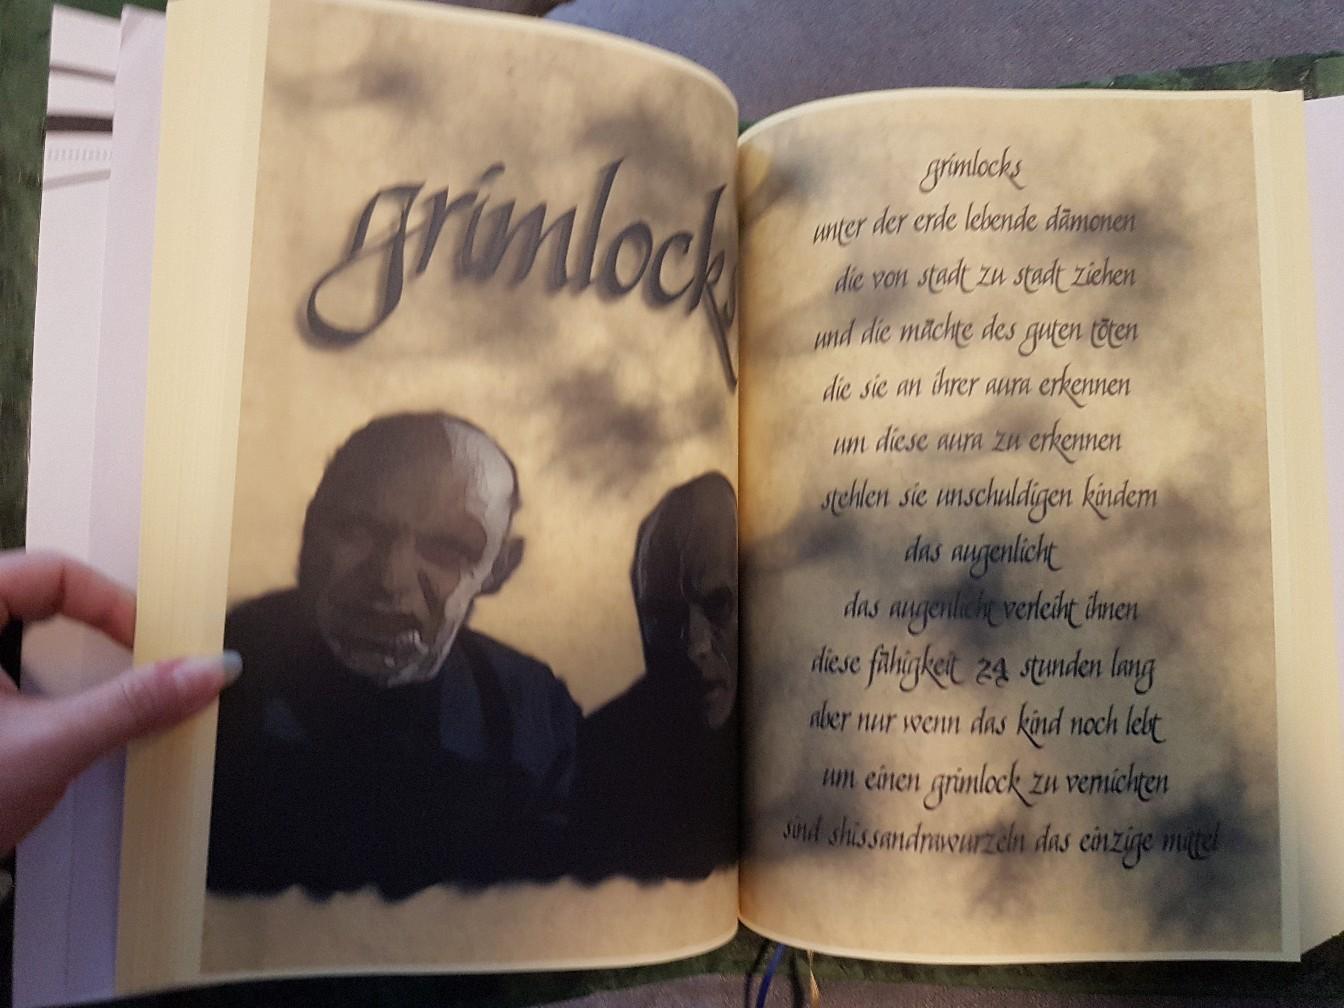 grimlocks
grimlocks
unter der erde lebende dämonen
die von stadt zu stadt ziehen
und die mächte des guten töten
die sie an ihrer aura erkennen
um diese aura zu erkennen
stehlen sie unschuldigen kindern
das augenlicht
das augenlicht verleiht ihnen
diese fähigkeit 24 stunden lang
aber nur wenn das kind noch lebt
um einen grimlock zu vernichten
sind shissandrawurzeln das einzige mittel